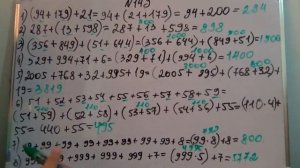 N145
1) (94+179)+21=94+(21+179)=94+200=294
2) 287+(13+598)=287+13+598=898
3) (356+849)+(51+644)=(356+644)+(849+51)=1900
4) 329+994+71+6=(329+71)+(994+6)=1400
5) 2005+768+32+995+19=(2005+995)+(768+32)+
19=3819
6) 51+52+53+54+55+56+57+58+59=
(51+59)+(52+58)+(53+57)+(54+56)+55=(110·4)+
55=440+55=495
+99+99+99+99+99+99+8=(99·8)+8=800
+999+999+999+7=(999·5)+7=